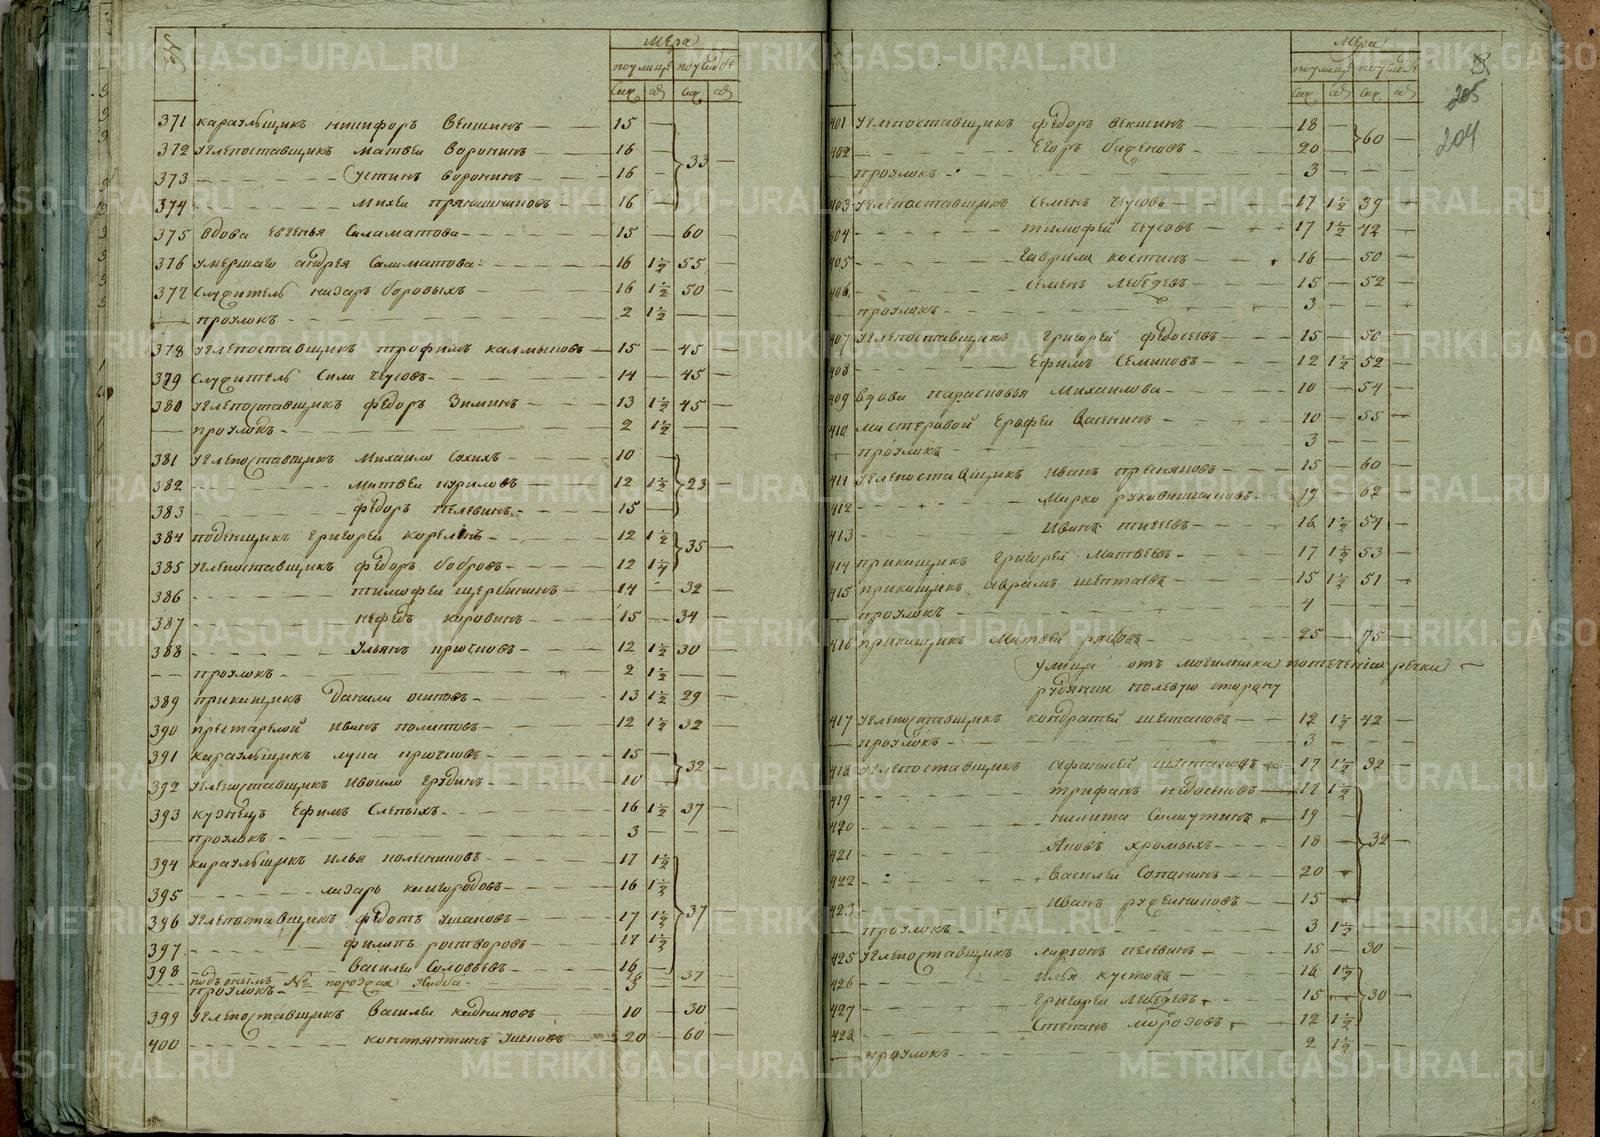 № Мера
по улице по усадбе
саж. ар. саж. ар.
371 караульщикъ никифоръ Векшинъ 15
372 углепоставщикъ матвей Воронинъ 16 33
373 Устинъ воронинъ 16
374 михей прянишниковъ 16
375 вдова евгенья Саламатова 15 60
376 умершаго андрея Саламатова 16 1½ 55
377 служитель назаръ боровыхъ 16 1½ 50
проулокъ 2 1½
378 углепоставщикъ трофимъ калмыковъ 15 45
379 служитель Сила чеусовъ 14 45
380 углепоставщикъ федоръ Зиминъ 13 1½ 45
проулокъ 2 1½
381 углепоставщикъ михайло Сухихъ 10
382 матвей куриловъ 12 1½ 23
383 федоръ пелевинъ 15
384 поденщикъ григорей корелинъ 12 1½ 35
385 углепоставщикъ федоръ бобровъ 12 1½
386 тимофей щербининъ 14 32
387 нефедъ коровинъ 15 34
388 Ульянъ прючковъ 12 1½ 30
проулокъ 2 1½
389 прикащикъ данила осиповъ 13 1½ 29
390 престарелой Иванъ политовъ 12 1½ 32
391 караульщикъ лука прючковъ 15
392 углепоставщикъ Ивойло грудинъ 10 32
393 кузнецъ Ефимъ Слепыхъ 16 1½ 37
проулокъ 3
394 караульщикъ илья колесниковъ 17 1½
395 лазарь кайгородовъ 16 1½
396 углепоставщикъ федотъ ушаковъ 17 1½ 37
397 филипъ ростворовъ 17 1½
398 василей Соловьевъ 16
подъ онымъ № порозжая Изба 16 37
проулокъ 3
399 углепоставщикъ василей кадниковъ 10 30
400 константинъ ушковъ 20 60
Мера
по улице по усадбе
саж. ар. саж. ар.
205
204
401 углепоставщикъ федоръ векшинъ 18 60
402 Егоръ бифеновъ 20
проулокъ 3
403 углепоставщикъ семенъ чеусовъ 17 1½ 39
404 тимофей чеусовъ 17 1½ 42
405 гаврила костинъ 16 50
406 семенъ лебедевъ 15 52
проулокъ 3
407 углепоставщикъ григорей федосеевъ 15 50
408 Ефимъ Семиновъ 12 1½ 52
409 вдова парасковья михайлова 10 54
410 мастеровой Ерофей Васенинъ 10 55
проулокъ 3
411 углепоставщикъ иванъ пресняковъ 15 60
412 марко рукавишниковъ 19 62
413 Иванъ пигеевъ 16 1½ 54
414 прикащикъ григорей матвеевъ 17 1½ 53
415 прикащикъ аврамъ шептаевъ 15 1½ 51
проулокъ 4
416 прикащикъ матвей рябовъ 25 75
улица отъ могильника по течению речки
рудянки полевую сторону
417 углепоставщикъ кондратей шептаковъ 12 1½ 42
проулокъ 3
418 углепоставщикъ афанасей шептаковъ 17 1½ 32
419 трифанъ недосековъ 17 1½
420 никита Саламутинъ 19
421 яковъ хромыхъ 18 32
422 василей Сопанинъ 20
423 иванъ рудешниковъ 15
проулокъ 3 1½
425 углепоставщикъ ларионъ пелевинъ 15 30
426 илья кустовъ 16 1½
427 григорей лебедевъ 15 30
428 Степанъ морозовъ 12 1½
проулокъ 2 1½